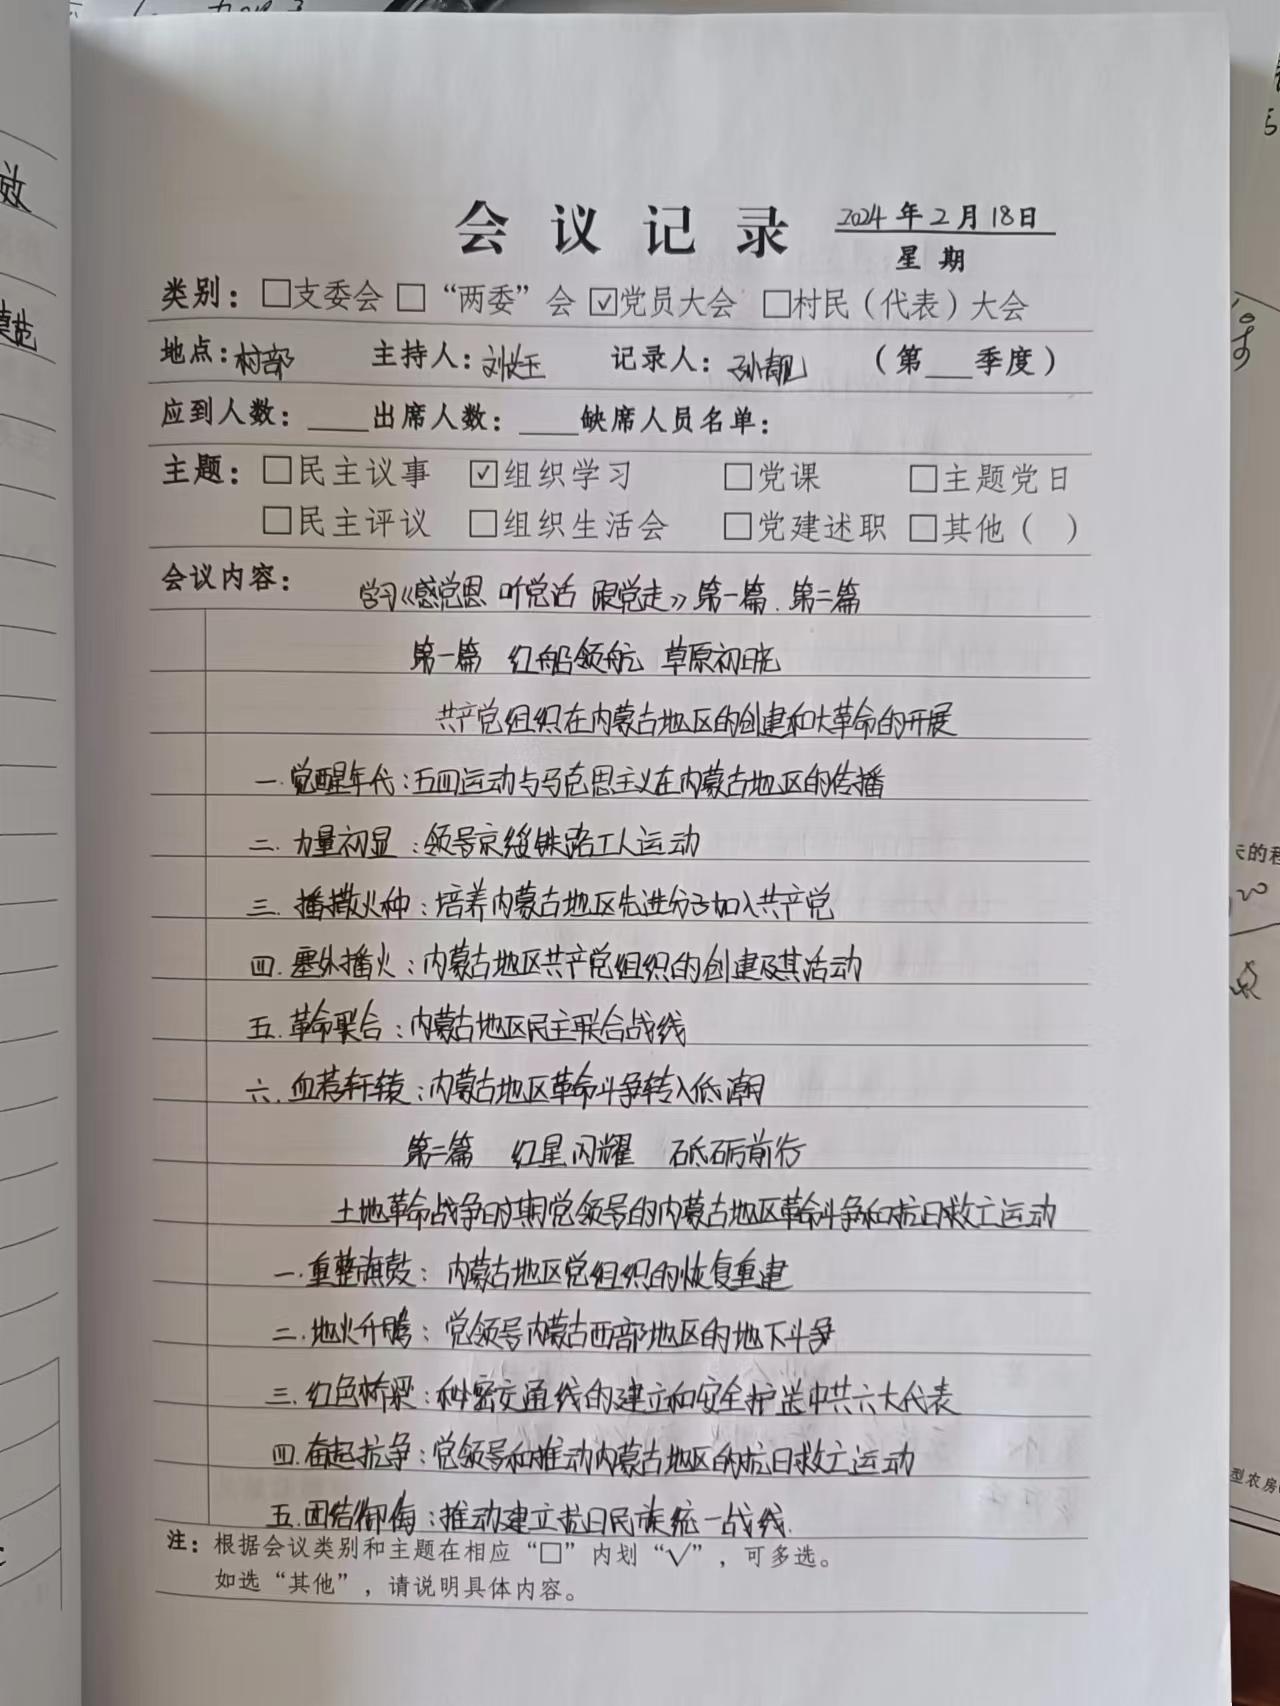 会议记录 2024年2月18日
星期
类别：□支委会 □“两委”会 ☑党员大会 □村民（代表）大会
地点：村部 主持人：刘 记录人：孙靓 （第___季度）
应到人数：____出席人数：____缺席人员名单：
主题：□民主议事 ☑组织学习 □党课 □主题党日
□民主评议 □组织生活会 □党建述职 □其他（ ）
会议内容：
学习《感党恩 听党话 跟党走》第一篇.第二篇
第一篇 红船领航 草原初晓
共产党组织在内蒙古地区的创建和大革命的开展
一.觉醒年代：五四运动与马克思主义在内蒙古地区的传播
二.力量初显：领导京绥铁路工人运动
三.播撒火种：培养内蒙古地区先进分子加入共产党
四.塞外播火：内蒙古地区共产党组织的创建及其活动
五.革命联合：内蒙古地区民主联合战线
六.血荐轩辕：内蒙古地区革命斗争转入低潮
第二篇 红星闪耀 砥砺前行
土地革命战争时期党领导的内蒙古地区革命斗争和抗日救亡运动
一.重整旗鼓：内蒙古地区党组织的恢复重建
二.地火升腾：党领导内蒙古西部地区的地下斗争
三.红色桥梁：秘密交通线的建立和安全护送中共六大代表
四.奋起抗争：党领导和推动内蒙古地区的抗日救亡运动
五.团结御侮：推动建立抗日民族统一战线.
注：根据会议类别和主题在相应“□”内划“√”，可多选。
如选“其他”，请说明具体内容。
效
型农房